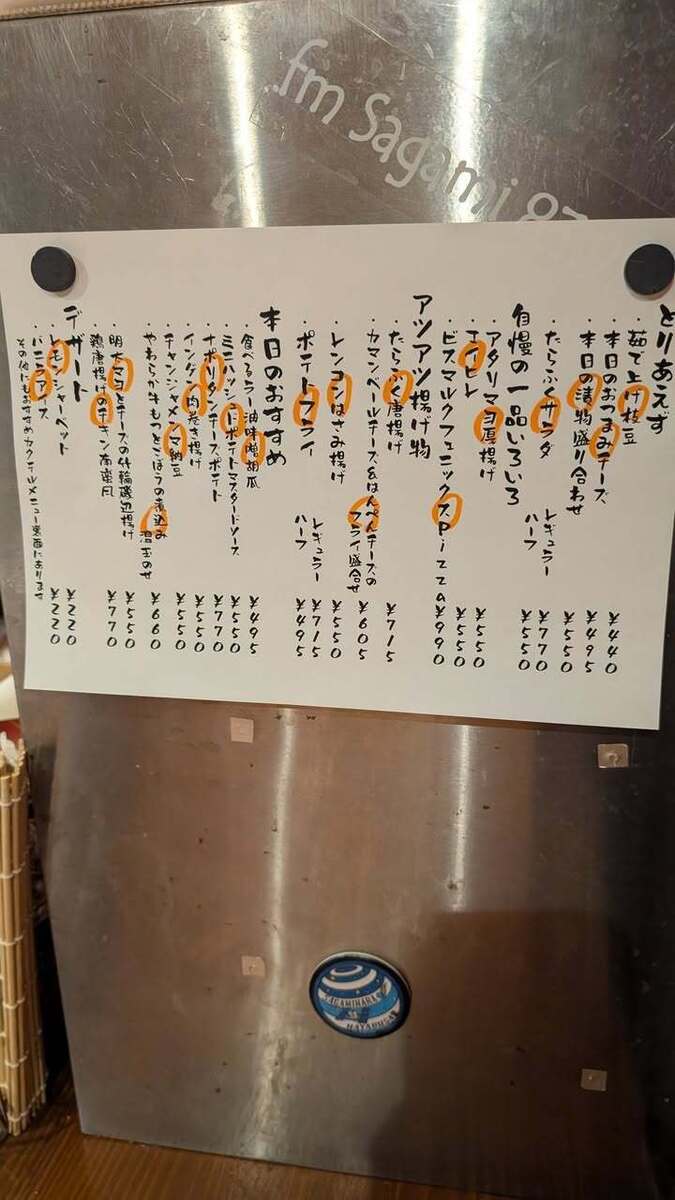 .fm Sagami 83
とりあえず
・茹で上げ枝豆 ¥440
・本日のおつまみチーズ ¥495
・本日の漬物盛り合わせ ¥550
自慢の一品いろいろ
・たらふくサラダ レギュラー ¥770
ハーフ ¥550
・アタリマヨ厚揚げ ¥550
・エイヒレ ¥550
・ビスマルクフェニックスPizza ¥990
アツアツ揚げ物
・たらふく唐揚げ ¥715
・カマンベールチーズ&はんぺんチーズの
フライ盛合せ ¥605
・レンコンはさみ揚げ ¥550
・ポテトフライ レギュラー ¥715
ハーフ ¥495
本日のおすすめ
・食べるラー油味噌胡瓜 ¥495
・ミニハッシュドポテトマスタードソース ¥550
・ナポリタンチーズポテト ¥770
・インゲン肉巻き揚げ ¥550
・チャンジャメンマ納豆 ¥550
・やわらか牛もつとごぼうの煮込み
温玉のせ ¥660
・明太マヨとチーズの竹輪磯辺揚げ ¥550
・鶏唐揚げのチキン南蛮風 ¥770
デザート
・レモンシャーベット ¥220
・バニラアイス ¥220
その他にもおすすめカクテルメニュー裏面にあります
SAGAMIHARA
HAYABUSA